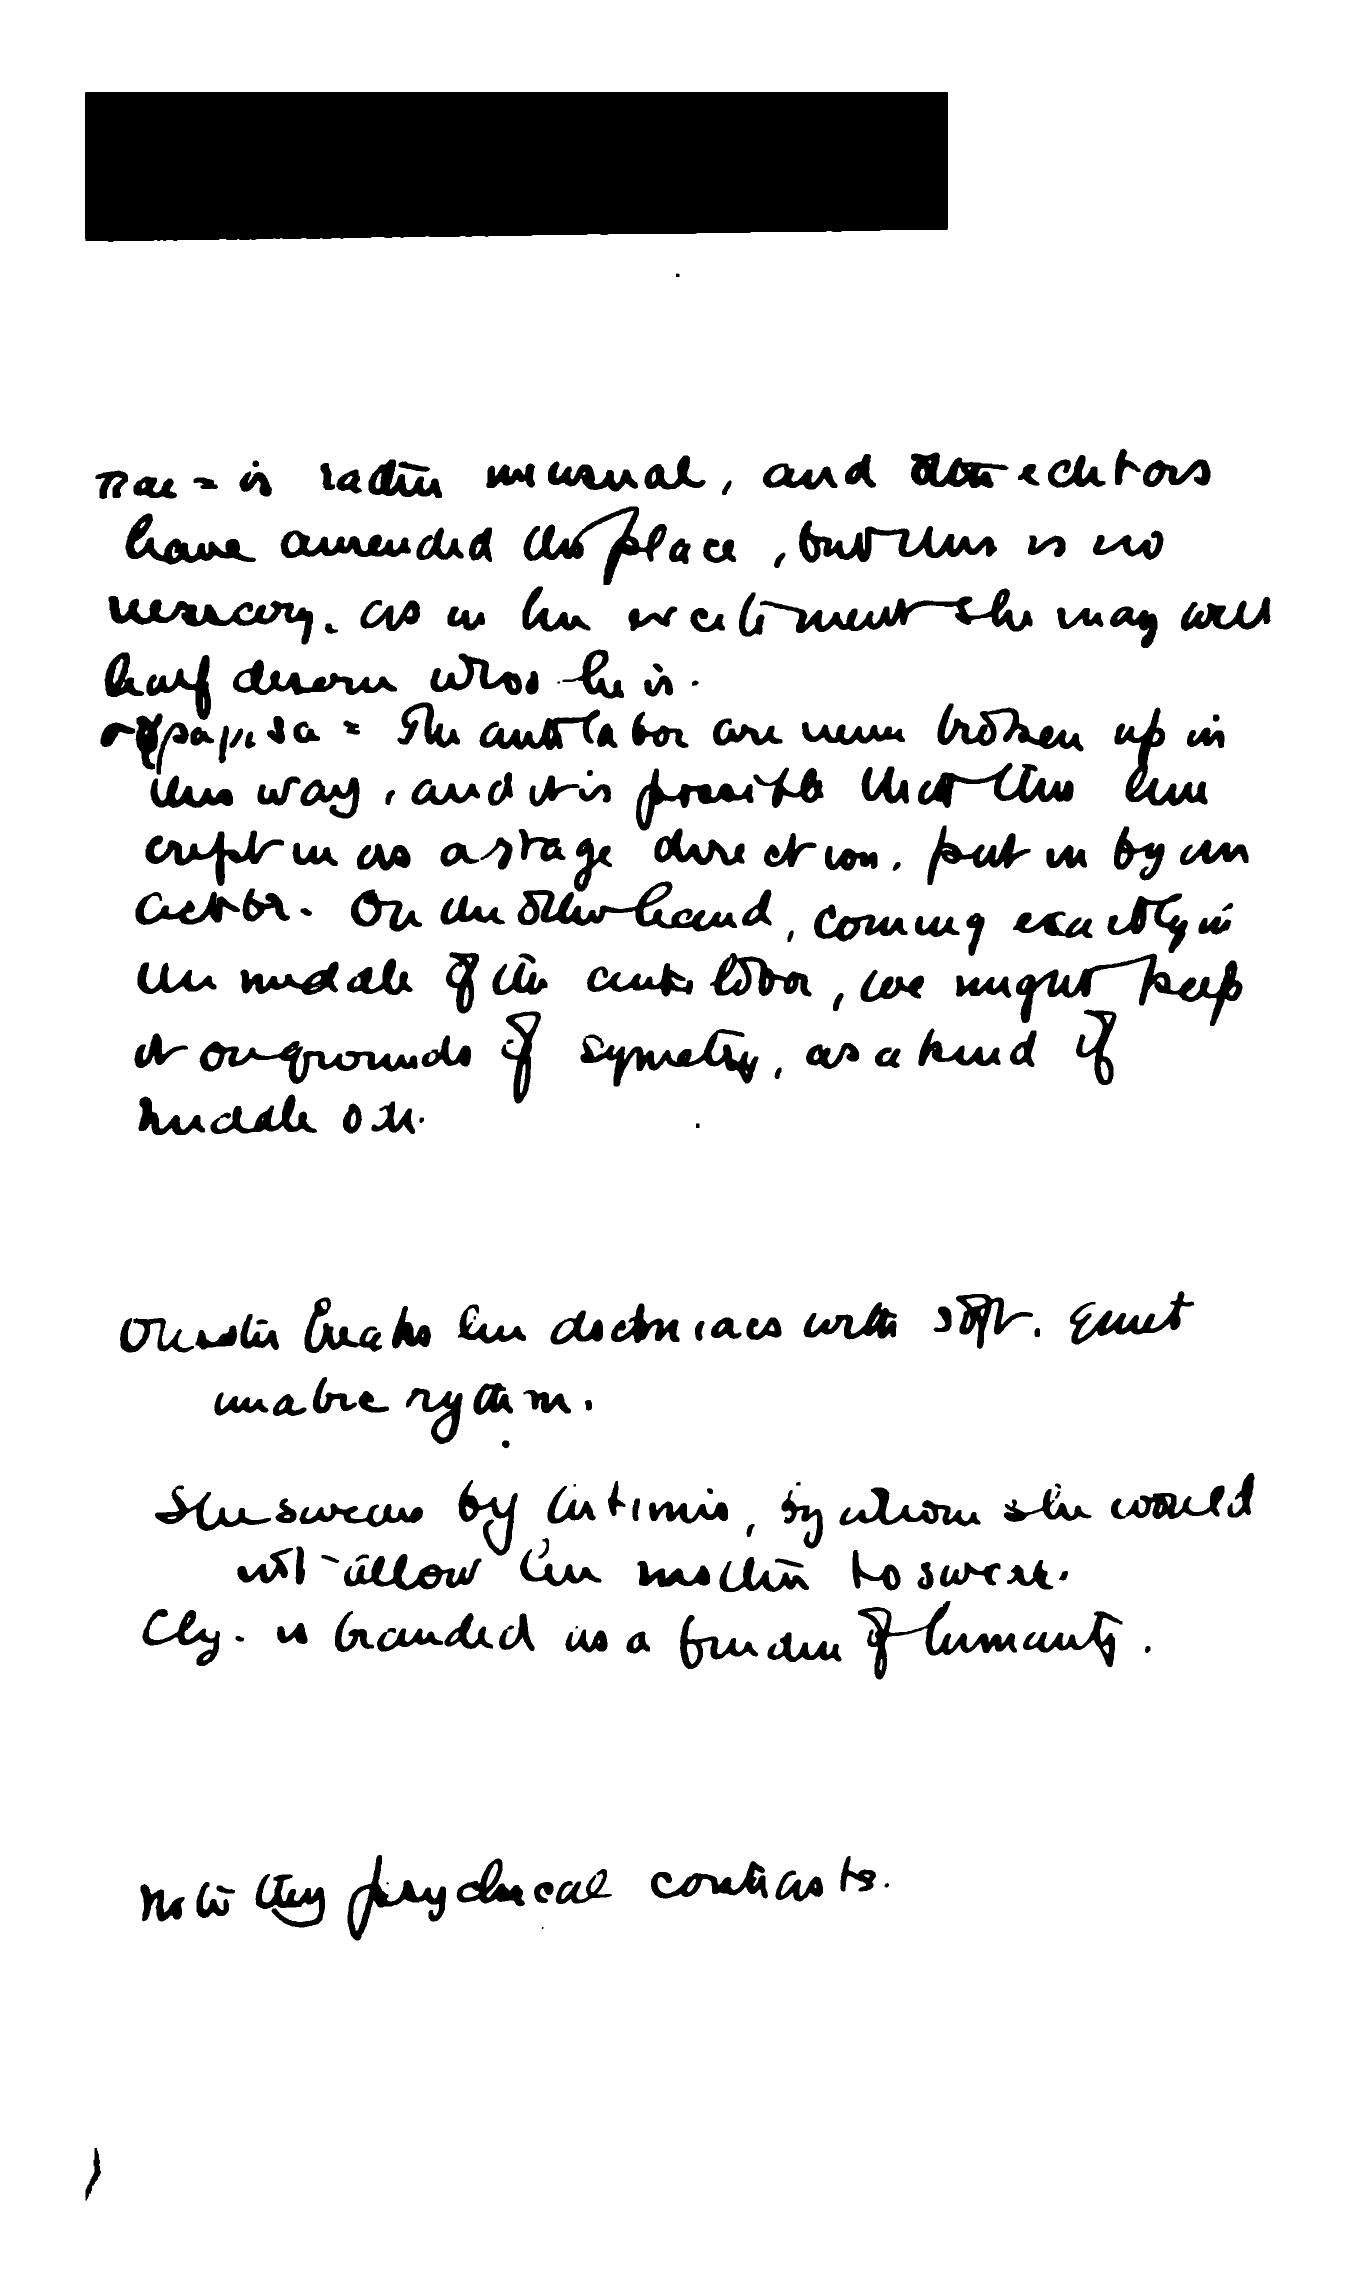 παι = is rather unusual, and editors
have amended this place, but this is no
necessary. as in her excitement she may well
half discern who he is.
σφραγισα = The antilaboi are never broken up in
this way, and it is possible that this line
crept in as a stage direction, put in by an
actor. On the other hand, coming exactly in
the middle of the antilaboi, we might keep
it on grounds of symetry, as a kind of
middle one.
Orestes breaks her dochmiacs with soft. quiet
iambic rythm.
She swears by Artimis, by whom she would
not allow her mother to swear.
Cly. is branded as a burden of humanity.
Note the psychical contrasts.